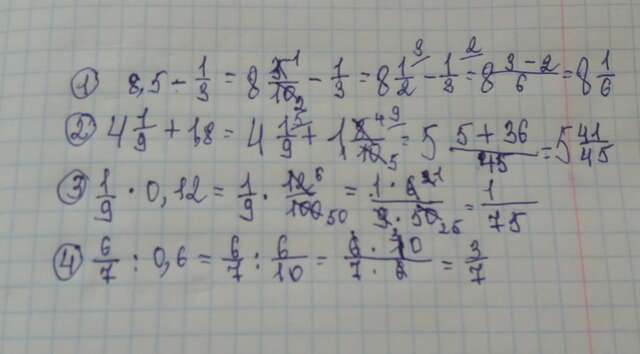 ① 8,5 - 1/3 = 8 5/10 - 1/3 = 8 1/2 - 1/3 = 8 3-2/6 = 8 1/6
② 4 1/9 + 1,8 = 4 1/9 + 1 8/10 = 5 5+36/45 = 5 41/45
③ 1/9 · 0,12 = 1/9 · 12/100 = 1·6/9·50 = 1/75
④ 6/7 : 0,6 = 6/7 : 6/10 = 6·10/7·6 = 3/7